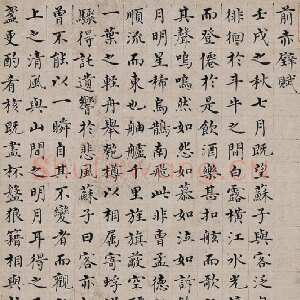 前赤壁賦
壬戌之秋七月既望蘇子與客泛
徘徊於斗牛之間白露橫江水光
而登僊於是飲酒樂甚扣舷而歌
其聲嗚嗚然如怨如慕如泣如訴
月明星稀烏鵲南飛此非孟德
順流而東也舳艫千里旌旗蔽空
一葉之輕舟舉匏樽以相屬寄蜉
驟得託遺響於悲風蘇子曰客亦
曾不能以一瞬自其不變者而觀
上之清風與山間之明月耳得之
盞更酌肴核既盡杯盤狼籍相與